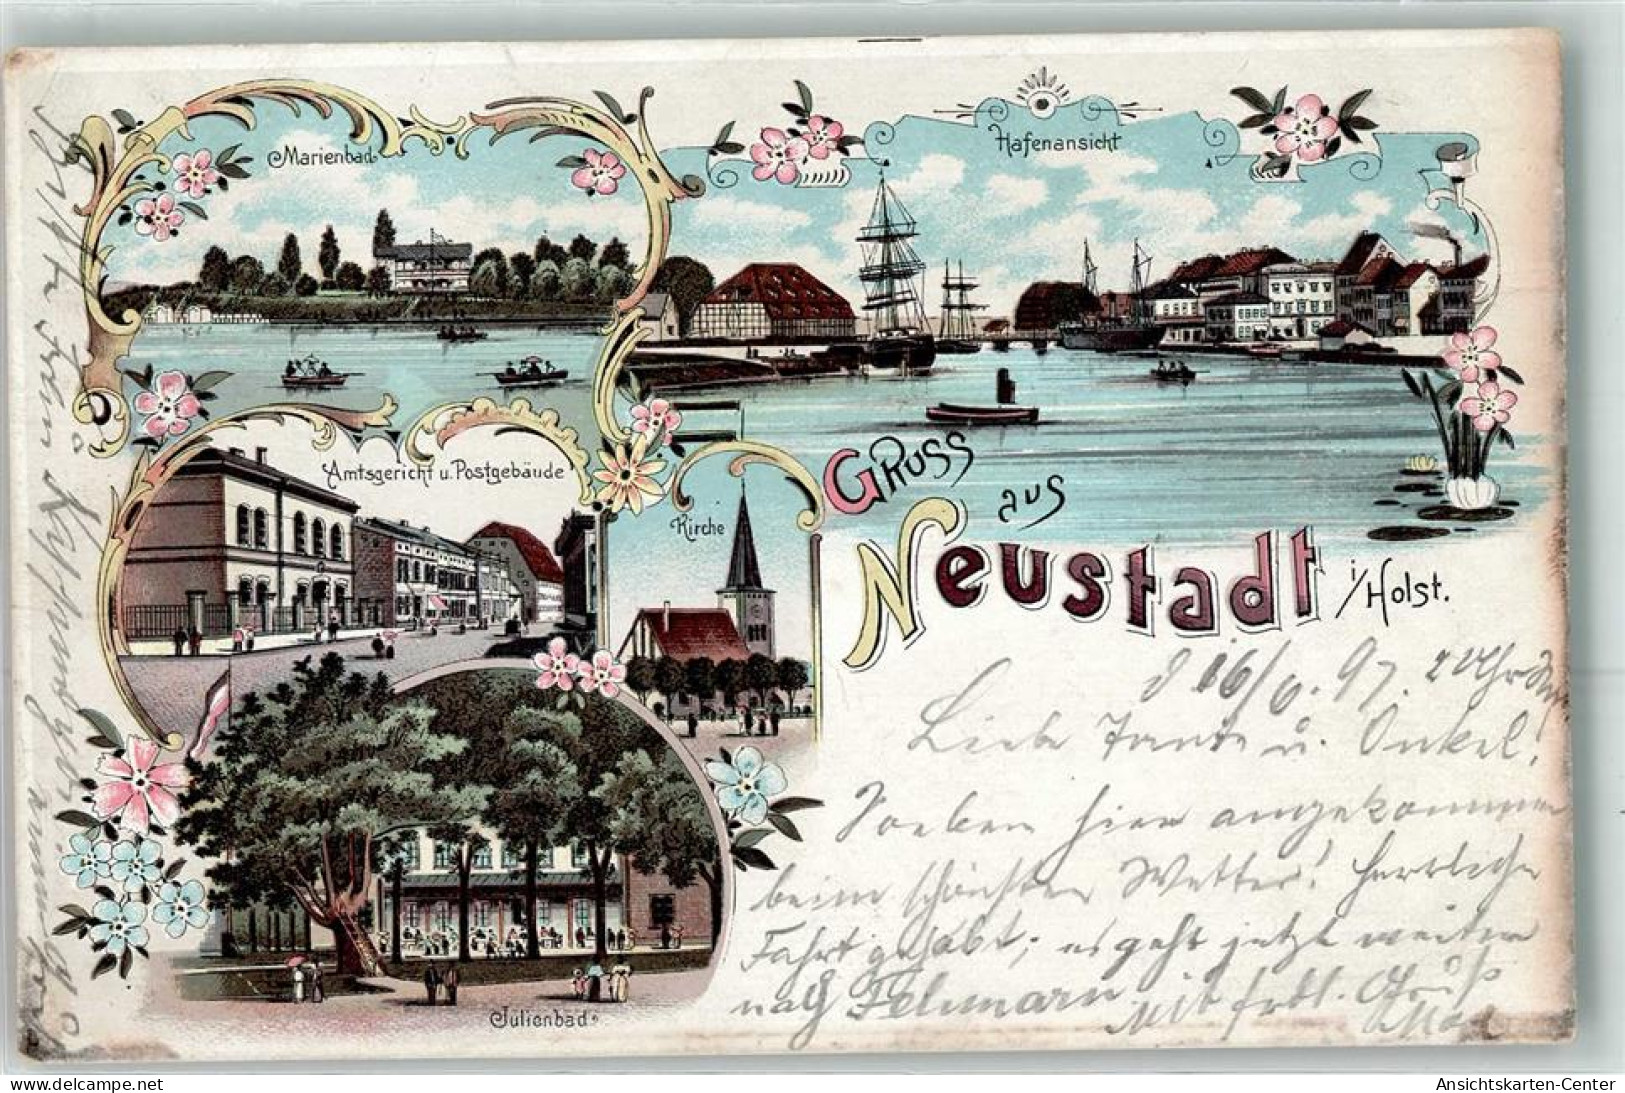 Marienbad
Hafenansicht
Amtsgericht u. Postgebäude
Kirche
Gruss
aus
Neustadt i/Holst.
Julienbad
d 16/6. 97. 2 Uhr
Liebe Tante u. Onkel!
Soeben hier angekommen
beim schönsten Wetter! Herrliche
Fahrt gehabt; es geht jetzt weiter
nach Fehmarn
Mit frdl. Gruß
Ansichtskarten-Center